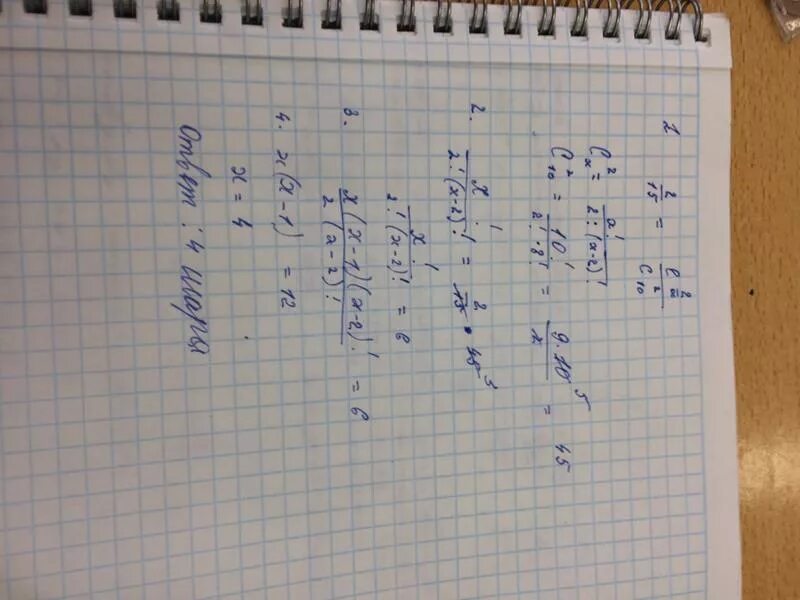 1 2/15 = C²ₓ/C²₁₀
C²ₓ = x!/2!(x-2)!
C²₁₀ = 10!/2!·8! = 9·10⁵/2 = 45
2. x!/2!(x-2)! = 2/15 · 45³
x!/2!(x-2)! = 6
3. x(x-1)(x-2)!/2(x-2)! = 6
4. x(x-1) = 12
x = 4
Ответ: 4 шара